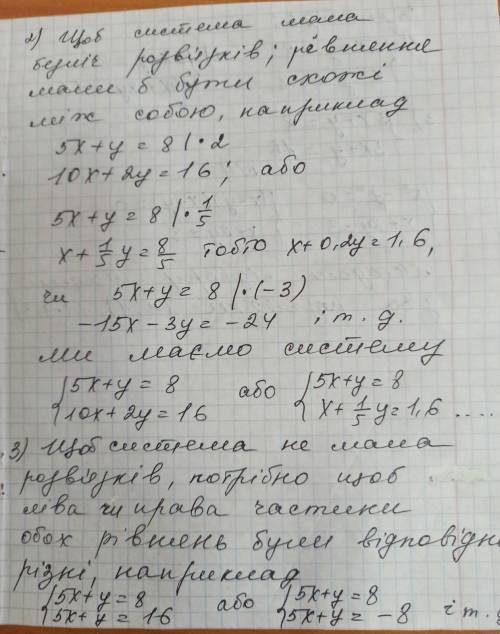 2) Щоб система мала
безліч розв'язків, рівняння
мали б бути схожі
між собою, наприклад
5x+y = 8 | · 2
10x+2y = 16; або
5x+y = 8 | · 1/5
x + 1/5 y = 8/5 тобто x+0,2y=1,6,
чи 5x+y = 8 | · (-3)
-15x - 3y = -24 і т. д.
Ми маємо систему
{5x+y = 8 або {5x+y = 8
{10x+2y = 16 {x + 1/5 y = 1,6 ....
3) Щоб система не мала
розв'язків, потрібно щоб
ліва чи права частини
обох рівнянь були відповідн
різні, наприклад
{5x+y = 8 або {5x+y = 8
{5x+y = 16 {5x+y = -8 і т.